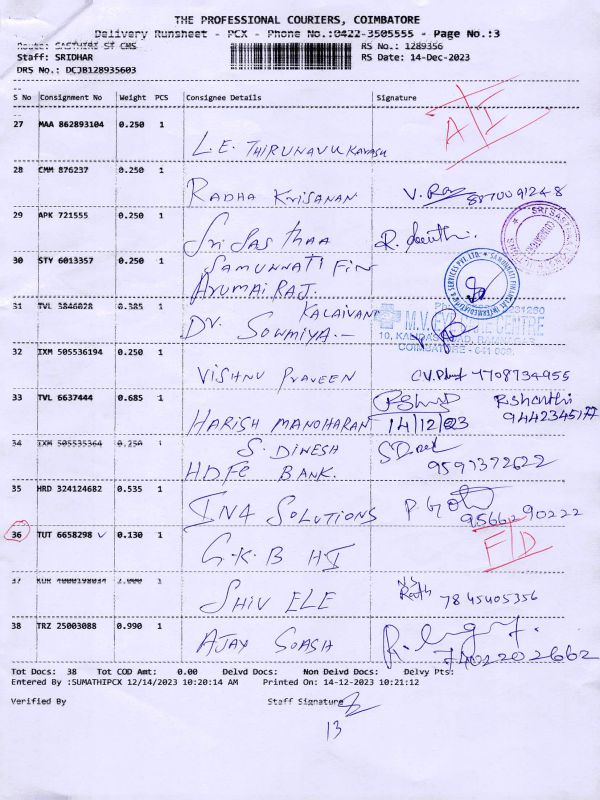 THE PROFESSIONAL COURIERS, COIMBATORE
Delivery Runsheet - PCX - Phone No.:0422-3505555 - Page No.:3
Route: SASTHIRI ST CMS RS No.: 1289356
Staff: SRIDHAR RS Date: 14-Dec-2023
DRS No.: DCJB128935603
S No Consignment No Weight PCS Consignee Details Signature
A/I
27 MAA 862893104 0.250 1
L.E. THIRUNAVUKARASU
28 CMM 876237 0.250 1
RADHA KRISANAN 8870091248
29 APK 721555 0.250 1
Sri Sas thaa
30 STY 6013357 0.250 1
SAMUNNATI FIN
ARUMAI RAJ.
31 TVL 3846028 0.385 1 KALAIVANI
Dr. SOWMIYA.-
M.V. EYE CARE CENTRE
COIMBATORE - 641 009.
32 IXM 505536194 0.250 1
VISHNU PRAVEEN 7708734955
33 TVL 6637444 0.685 1 R.Shanthi
HARISH MANOHARAN 14/12/23
34 IXM 505535364 0.250 1 S. DINESH
HDFC BANK. 9591372622
35 HRD 324124682 0.535 1
INA SOLUTIONS 9566290222
36 TUT 6658298 0.130 1 F/D
G.K.B HI
37 KUR 4000198034 2.000 1
SHIV ELE 7845405356
38 TRZ 25003088 0.990 1
AJAY 7402202662
Tot Docs: 38 Tot COD Amt: 0.00 Delvd Docs: Non Delvd Docs: Delvy Pts:
Entered By :SUMATHIPCX 12/14/2023 10:20:14 AM Printed On: 14-12-2023 10:21:12
Verified By Staff Signature
13